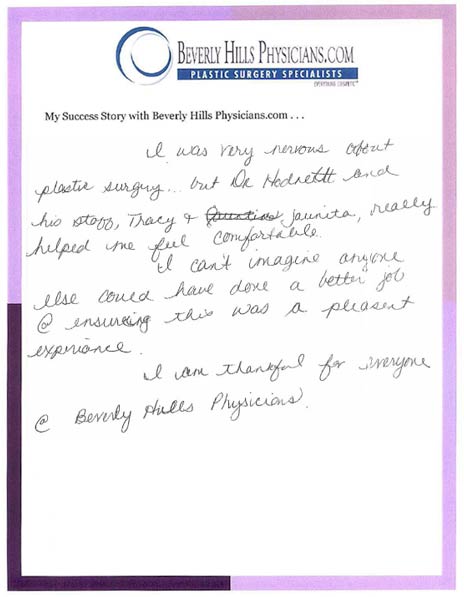 BEVERLY HILLS PHYSICIANS.COM
PLASTIC SURGERY SPECIALISTS
EVERYTHING COSMETIC
My Success Story with Beverly Hills Physicians.com . . .
I was very nervous about
plastic surgury... but Dr Hodnett and
his staff, Tracy & Jaunita, really
helped me feel comfortable.
I can't imagine anyone
else could have done a better job
@ ensureing this was a pleasent
experiance.
I am thankful for everyone
@ Beverly Hills Physicians.